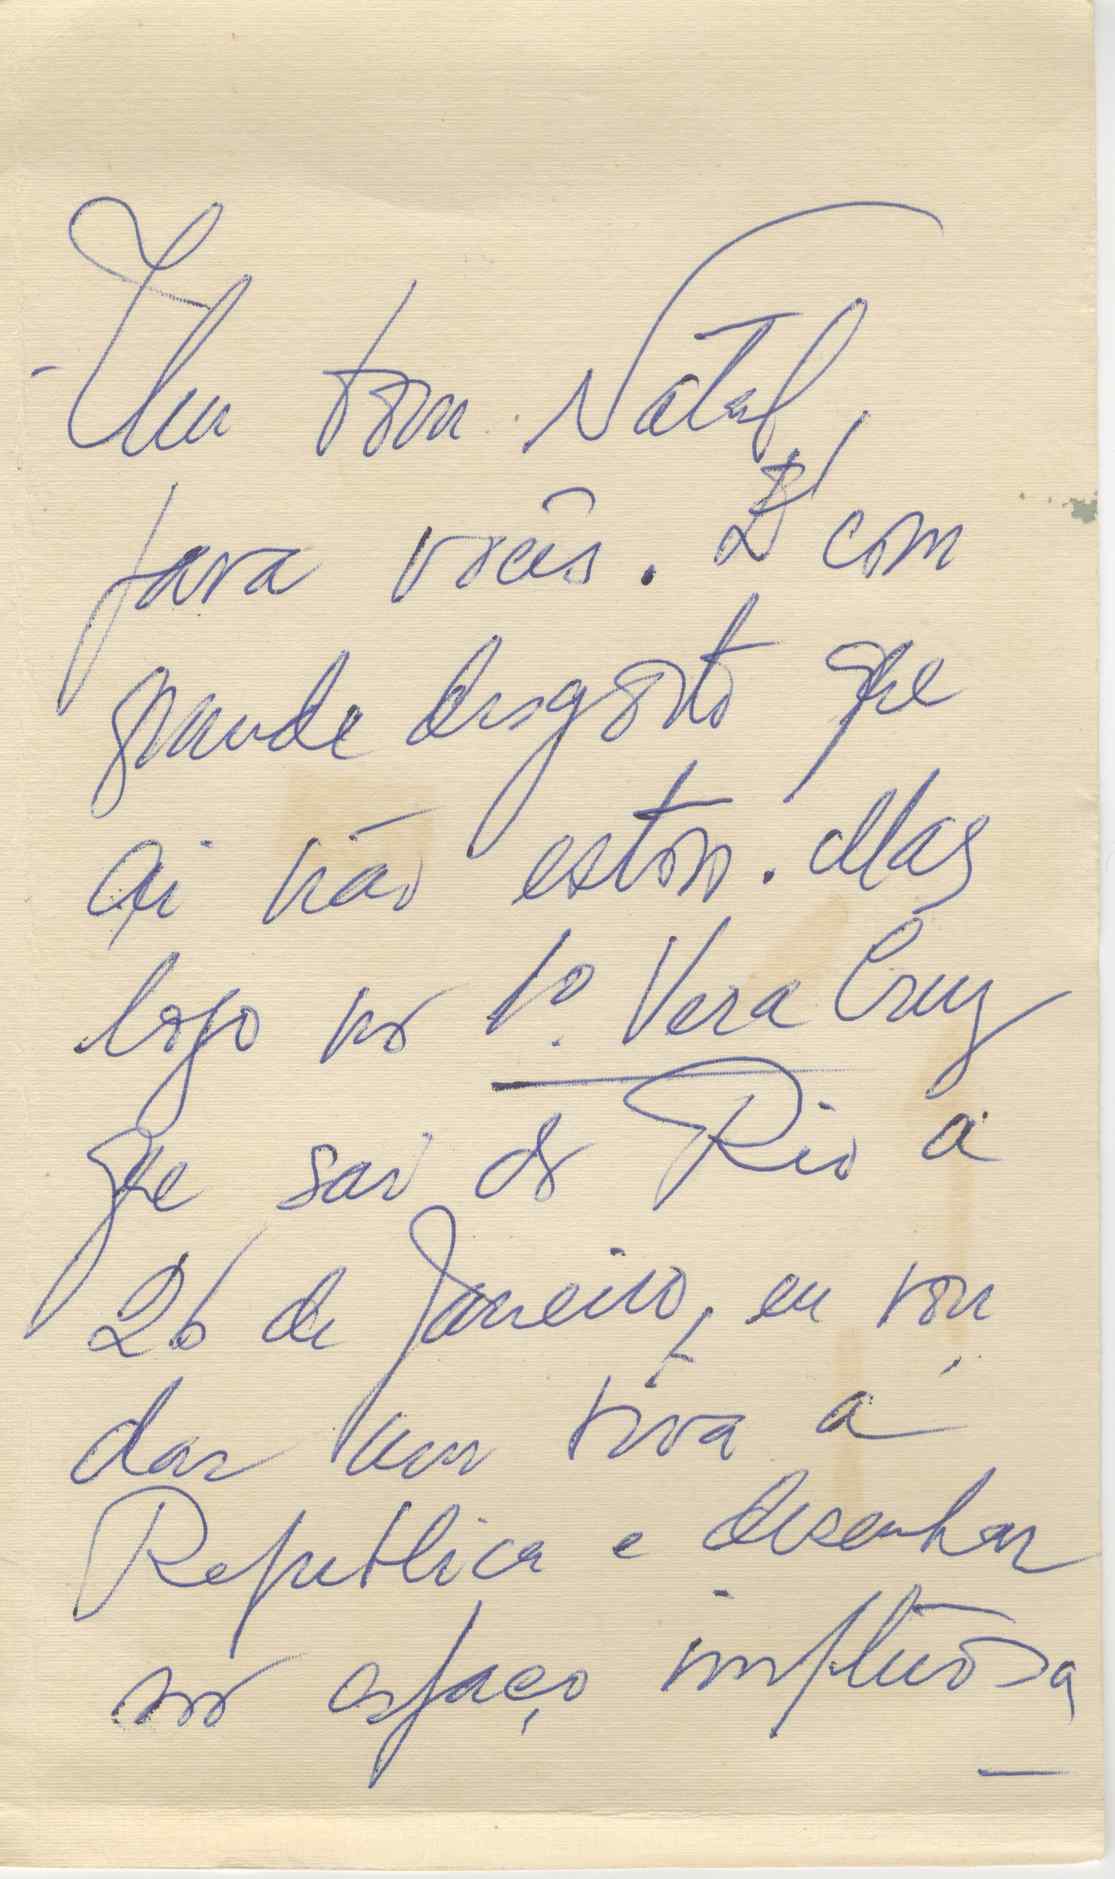 Um bom Natal
para vocês. É com
grande desgosto que
ai não estou. Mas
logo no 1º. Vera Cruz
que sai do Rio a
26 de Janeiro, eu vou
dar um viva à
Republica e desenhar
no espaço impetuosa